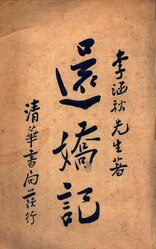 李涵秋先生著
還嬌記
清華書局發行